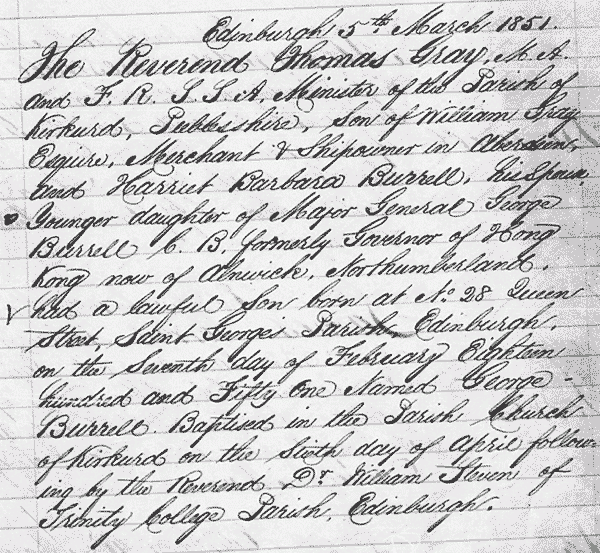 Edinburgh 5th March 1851.
The Reverend Thomas Gray, M. A.
and F. R. S. S. A. Minister of the Parish of
Kirkurd, Peeblesshire, Son of William Gray
Esquire, Merchant & Shipowner in Aberdeen,
and Harriet Barbara Burrell, his Spouse,
Younger daughter of Major General George
Burrell C. B. formerly Governor of Hong
Kong now of Alnwick, Northumberland.
had a lawful Son born at No. 28 Queen
Street, Saint George's Parish, Edinburgh,
on the Seventh day of February Eighteen
hundred and Fifty One Named George -
Burrell. Baptised in the Parish Church
of Kirkurd on the Sixth day of April follow-
ing by the Reverend Dr. William Steven of
Trinity College Parish, Edinburgh.